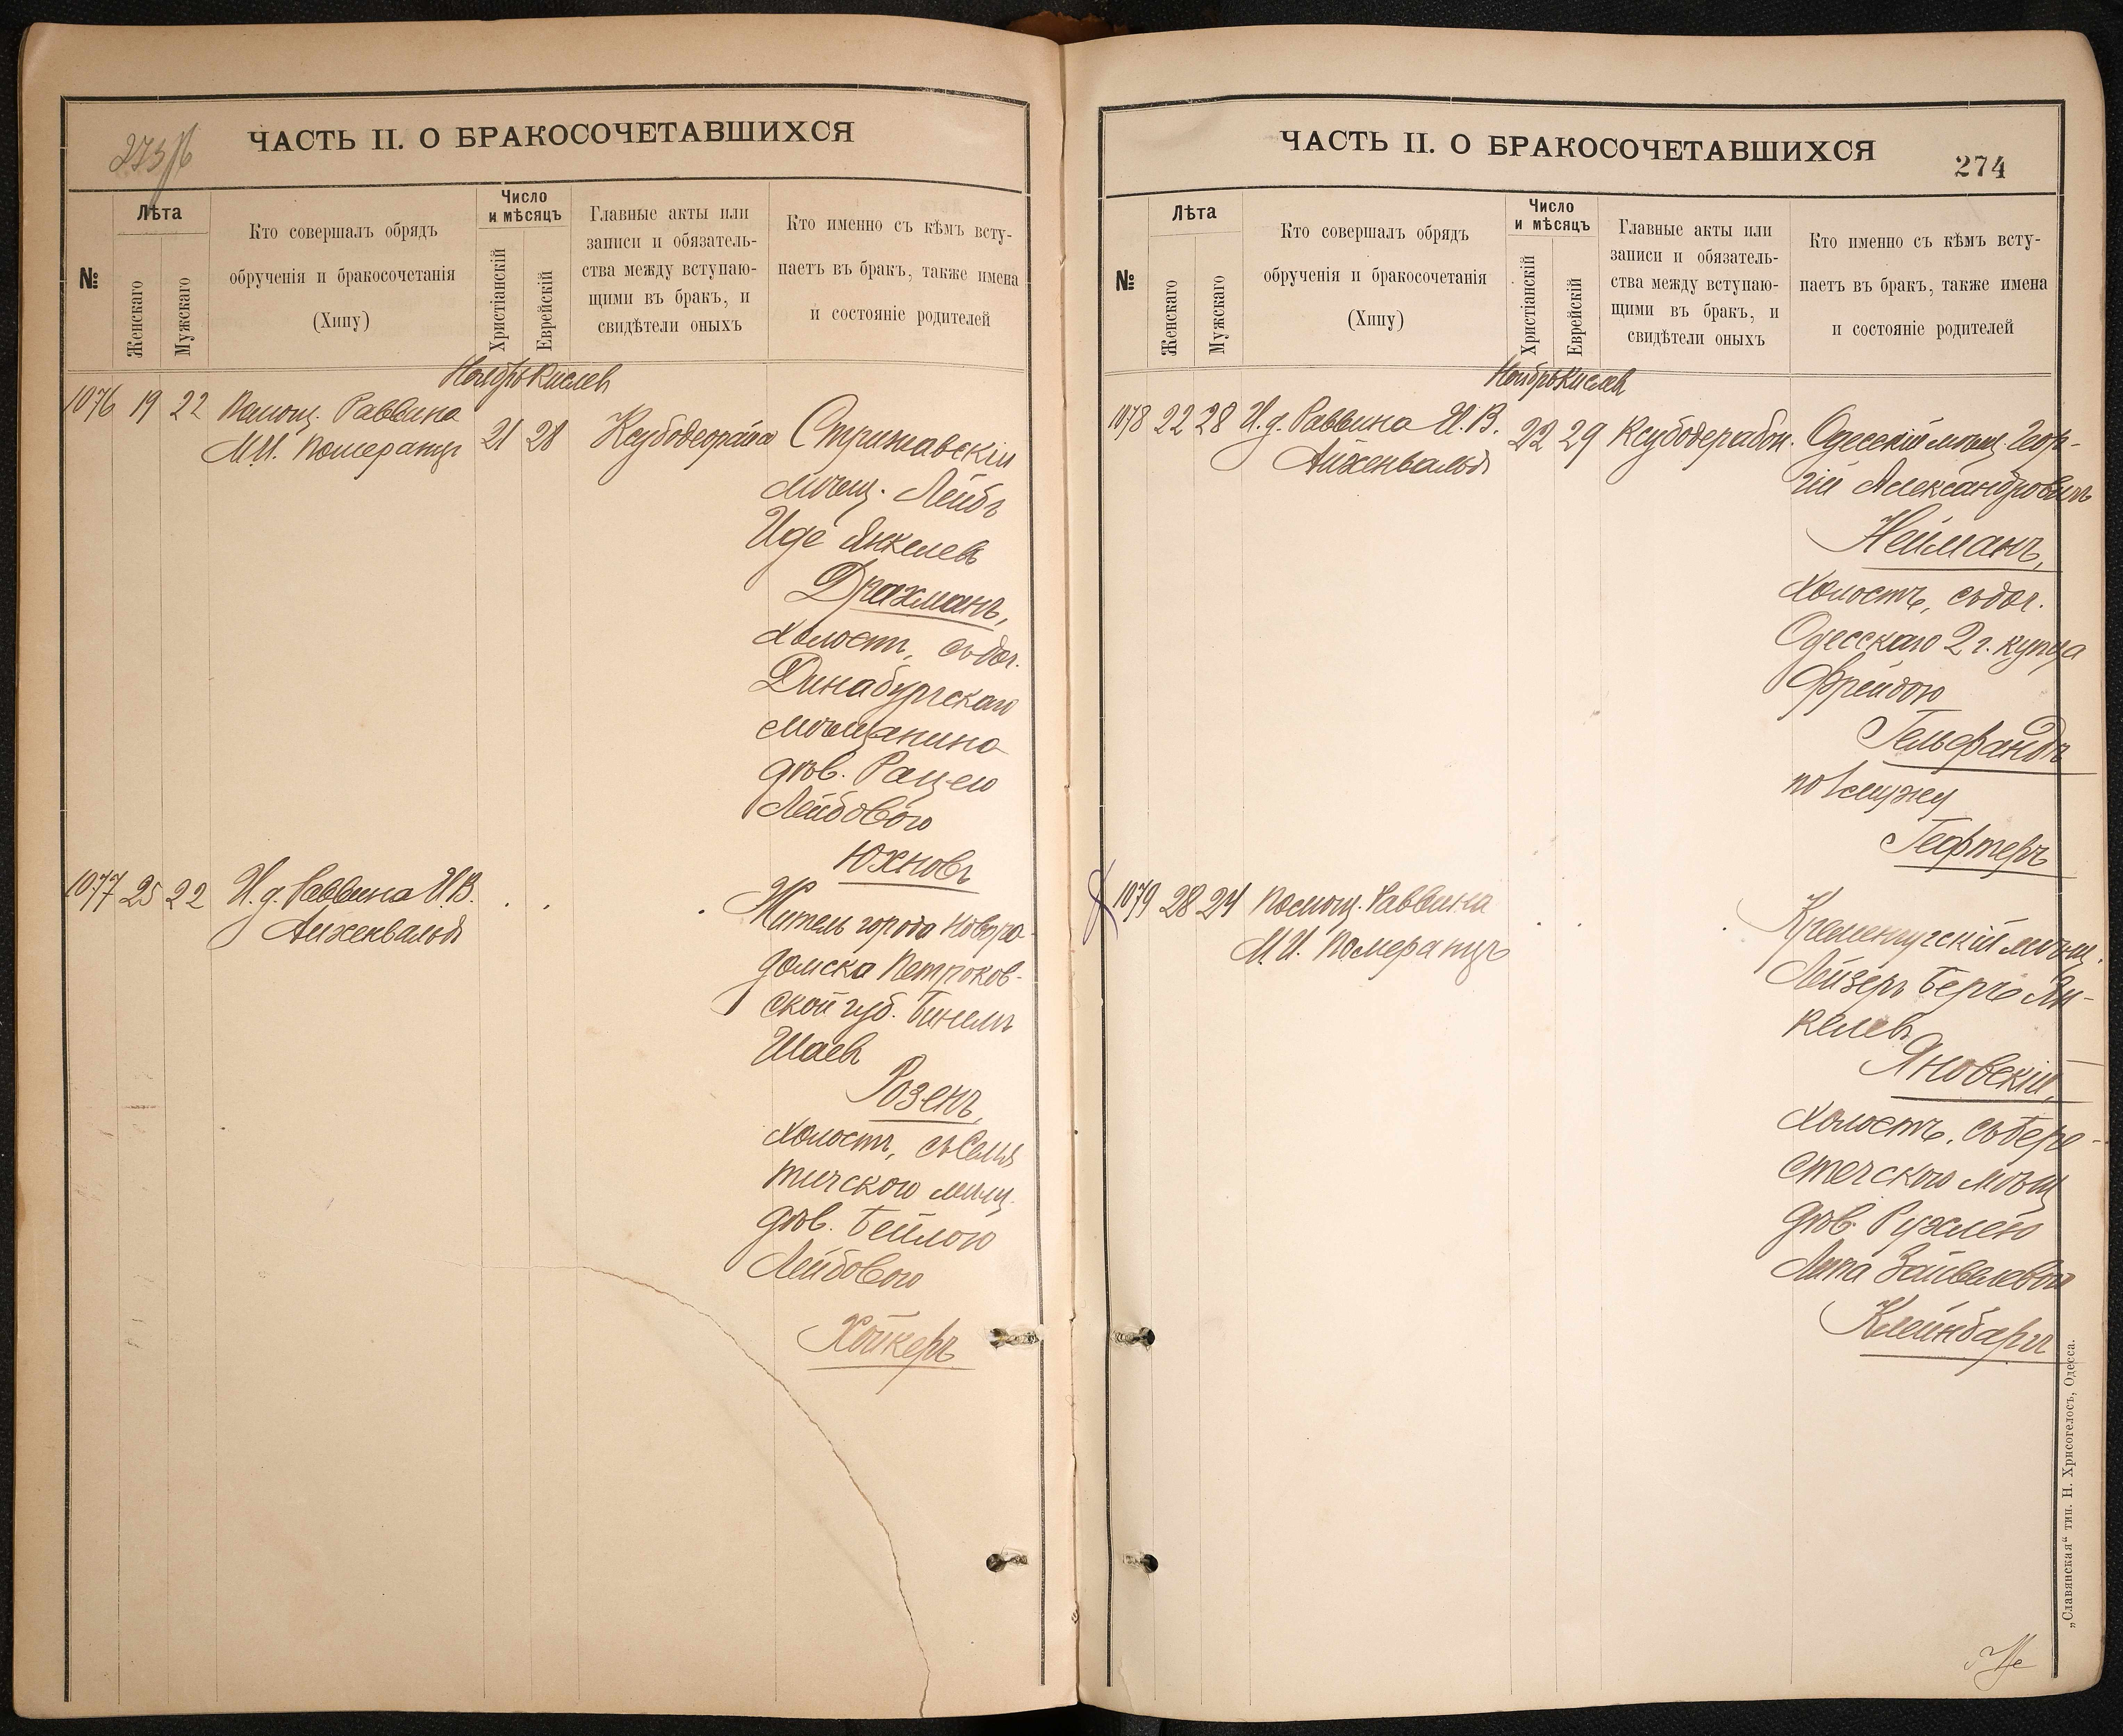 273/б
ЧАСТЬ II. О БРАКОСОЧЕТАВШИХСЯ
№
Лѣта
Женскаго
Мужскаго
Кто совершалъ обрядъ
обрученія и бракосочетанія
(Хипу)
Число
и мѣсяцъ
Христіанскій
Еврейскій
Главные акты или
записи и обязатель-
ства между вступаю-
щими въ бракъ, и
свидѣтели оныхъ
Кто именно съ кѣмъ всту-
паетъ въ бракъ, также имена
и состояніе родителей
Ноябрь Кислев
1076 19 22 Помощ. Раввина
М.И. Померанцъ 21 28
Стрижавскій
мѣщ. Лейбъ
Иде Янкелевъ
Драхманъ,
холостъ, съ доч.
Динабургскаго
мѣщанина
дѣв. Рацею
Лейбовою
Юхновъ
1077 25 22 И. д. Раввина И.В.
Айхенвальдъ
Житель города Новора-
домска Петроков-
ской губ. Бинемъ
Шаевъ
Розенъ,
холостъ, съ Семя
тичскою мѣщ.
дѣв. Бейлою
Лейбовою
Хойкеръ
ЧАСТЬ II. О БРАКОСОЧЕТАВШИХСЯ
274
№
Лѣта
Женскаго
Мужскаго
Кто совершалъ обрядъ
обрученія и бракосочетанія
(Хипу)
Число
и мѣсяцъ
Христіанскій
Еврейскій
Главные акты или
записи и обязатель-
ства между вступаю-
щими въ бракъ, и
свидѣтели оныхъ
Кто именно съ кѣмъ всту-
паетъ въ бракъ, также имена
и состояніе родителей
Ноябрь Кислев
1078 22 28 И. д. Раввина И.В.
Айхенвальдъ
22 29 Ксубодерабон. Одесскій мѣщ. Геор-
гій Александровичъ
Нейманъ,
холостъ, съ доч.
Одесскаго 2 г. купца
Фрейдою
Гельфандъ
по 1 мужу
Гефтеръ
1079 28 24 Помощ. Раввина
М.И. Померанцъ
Кременчугскій мѣщ.
Лейзеръ Берко Ян-
келевъ
Яновскій,
холостъ, съ Бере-
стечскою мѣщ
дѣв. Рухлею
Лита Зайвелевою
Клейнбаргъ
„Славянская“ тип. Н. Хрисогелосъ, Одесса.